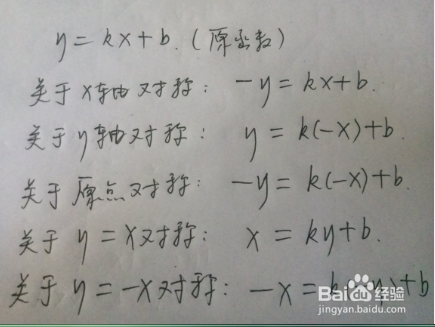 y = kx + b. (原函数)
关于x轴对称: -y = kx + b.
关于y轴对称: y = k(-x) + b.
关于原点对称: -y = k(-x) + b.
关于y = x对称: x = ky + b.
关于y = -x对称: -x = k(-y) + b
Baidu 经验
jingyan.baidu.com